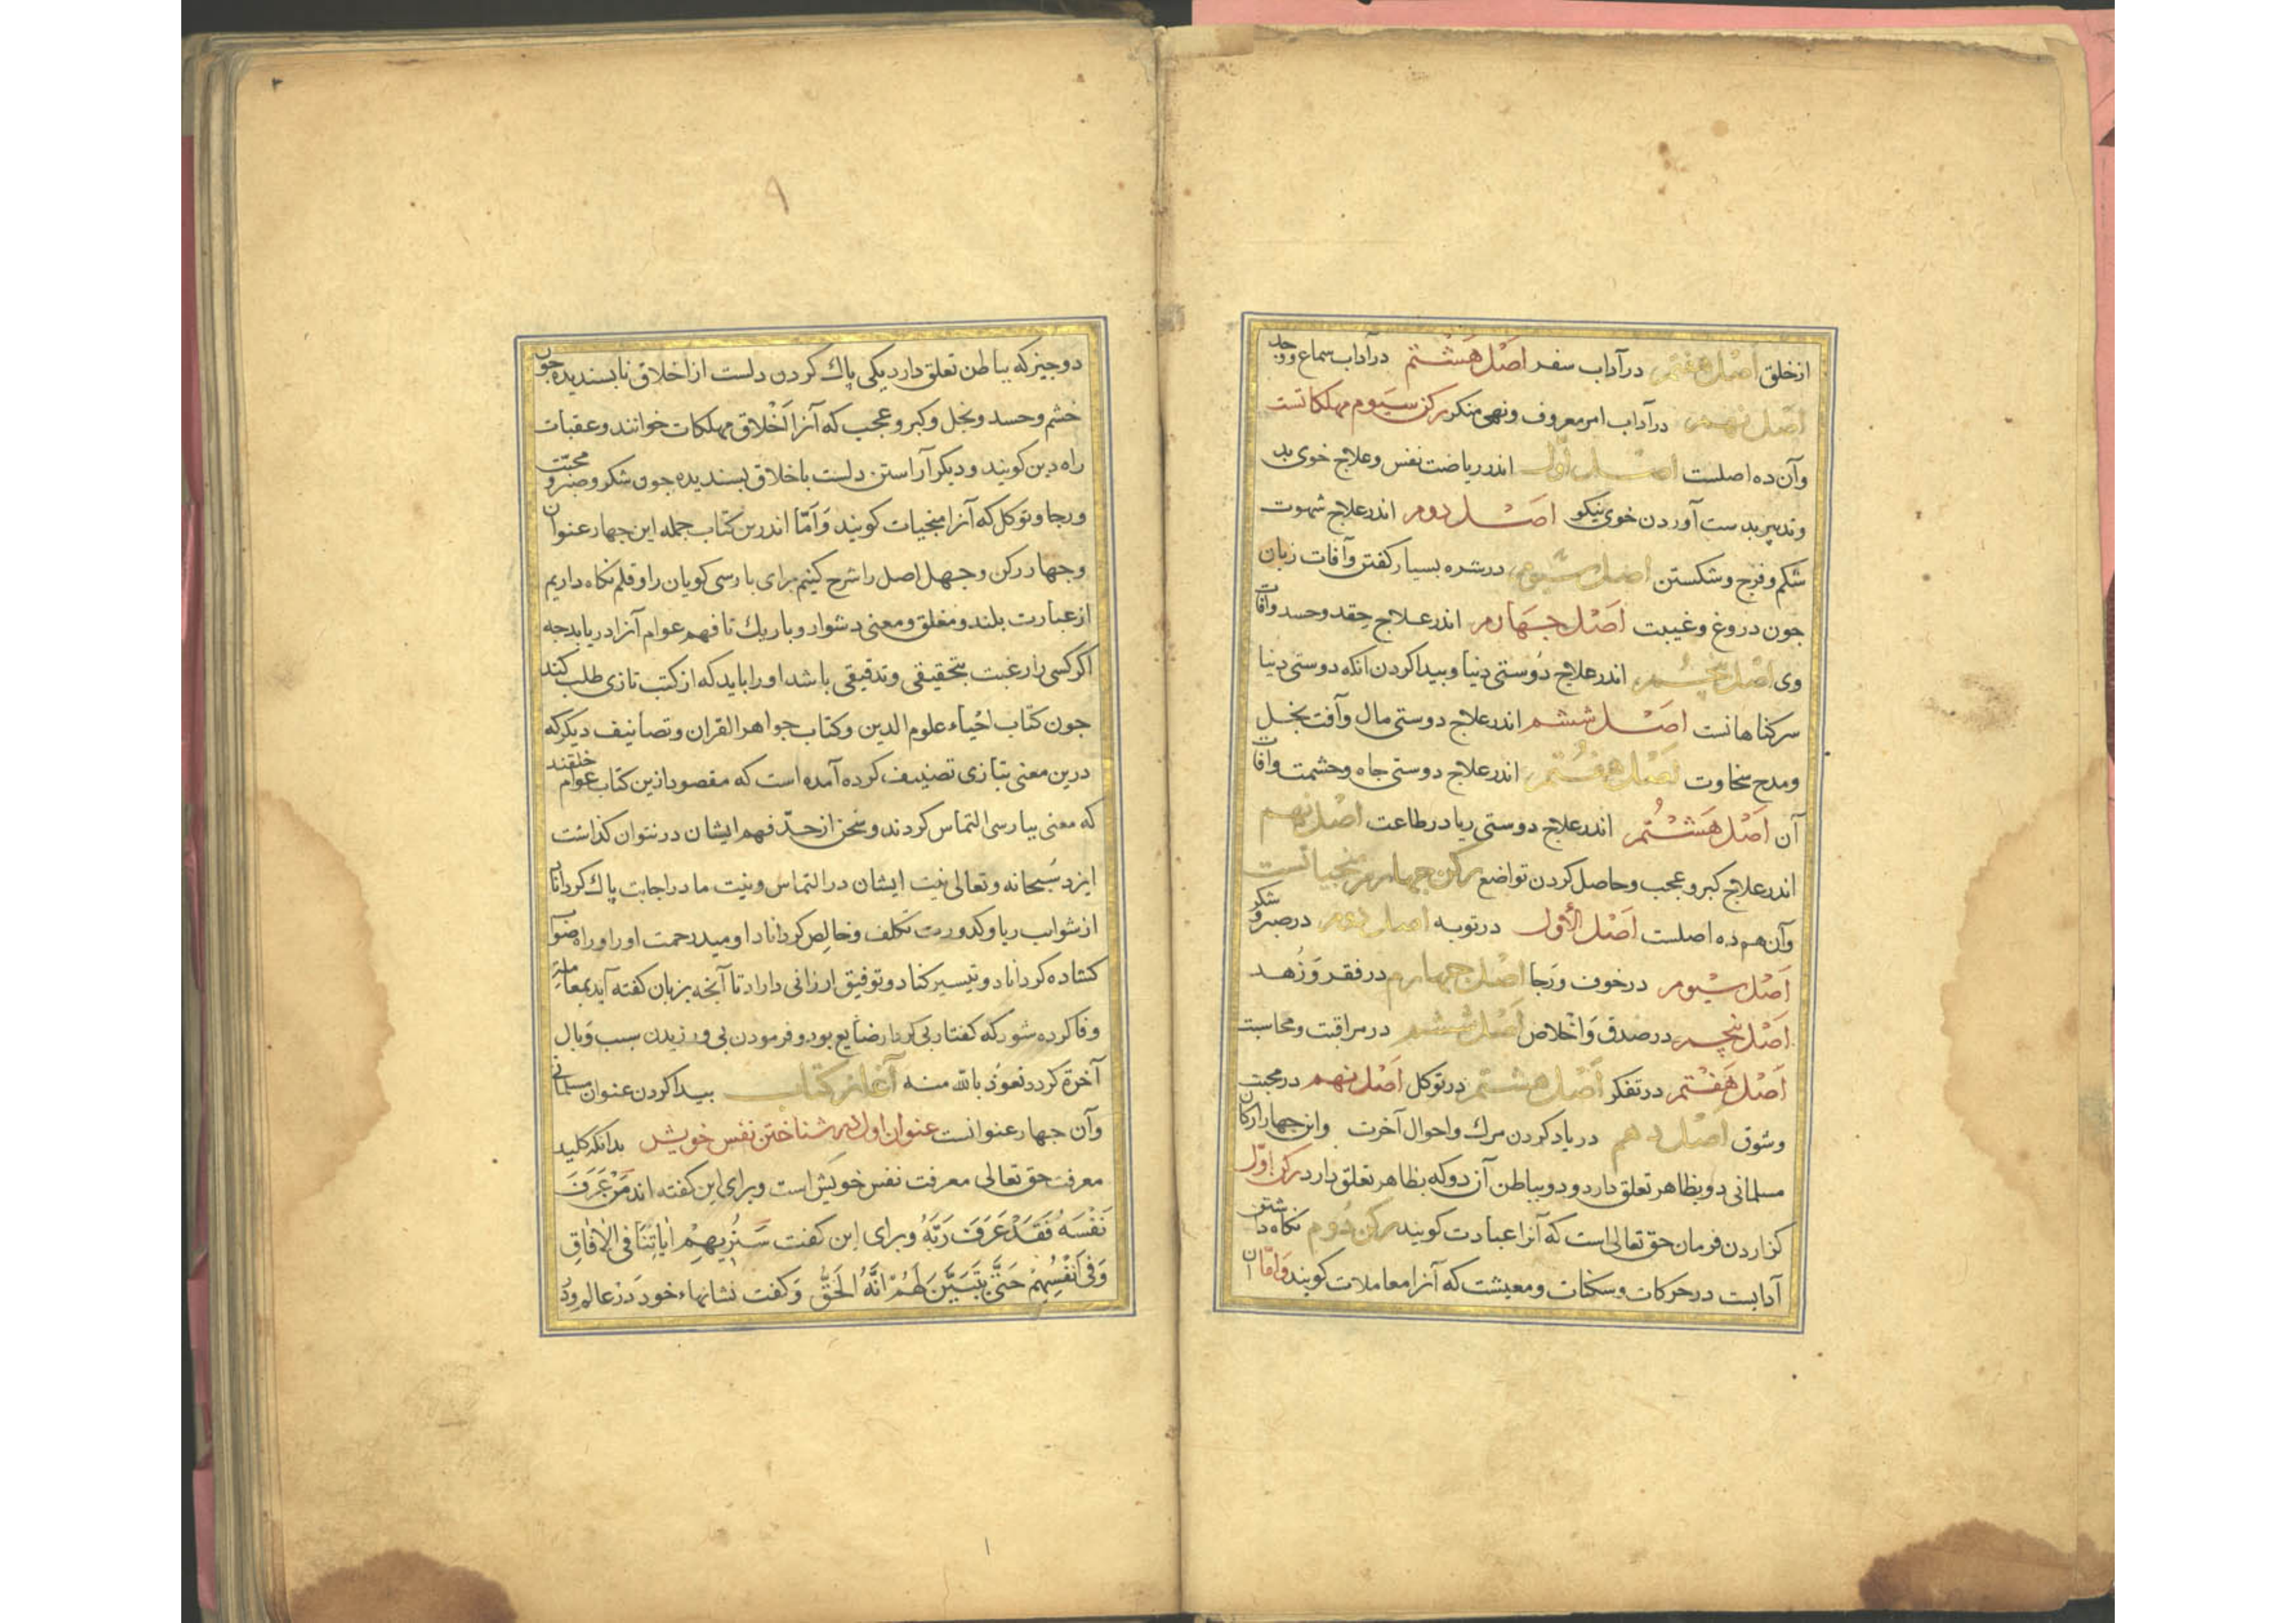 ازخلق اصل هفتم درآداب سفر اصل هشتم درآداب سماع ووجد
اصل نهم درآداب امر معروف ونهی منکر رکن سیوم مهلکاتست
وآن ده اصلست اصل اول اندر ریاضت نفس وعلاج خوی بد
وتدبیر بدست آوردن خوی نیکو اصل دوم اندر علاج شهوت
شکم وفرج وشکستن اصل سیوم درشره بسیار کفتن وآفات زبان
جون دروغ وغیبت اصل جهارم اندر علاج حقد وحسد وآفات
وی اصل پنجم اندر علاج دوستی دنیا وبیدا کردن انکه دوستی دنیا
سر کناهانست اصل ششم اندر علاج دوستی مال وآفت بخل
ومدح سخاوت اصل هفتم اندر علاج دوستی جاه وحشمت وآفات
آن اصل هشتم اندر علاج دوستی ریا در طاعت اصل نهم
اندر علاج کبر وعجب وحاصل کردن تواضع رکن جهارم منجیاتست
وآن هم ده اصلست اصل الأول درتوبه اصل دوم درصبر وشکر
اصل سیوم درخوف ورجا اصل جهارم درفقر وزهد
اصل پنجم درصدق واخلاص اصل ششم درمراقبت ومحاسبت
اصل هفتم درتفکر اصل هشتم درتوکل اصل نهم درمحبت
وشوق اصل دهم دریاد کردن مرك واحوال آخرت واین جهار ارکان
مسلمانی دو بظاهر تعلق دارد ودو بباطن آن دو که بظاهر تعلق دارد رکن اول
کزاردن فرمان حق تعالی است که آنرا عبادت کویند رکن دوم نکاه داشتن
آدابست درحرکات وسکنات ومعیشت که آنرا معاملات کویند وامّا آن
دو جیز که بباطن تعلق دارد یکی پاك کردن دلست از اخلاق نابسندیده جون
خشم وحسد وبخل وکبر وعجب که آنرا اخلاق مهلکات خوانند وعقبات
راه دین کویند ودیکر آراستن دلست باخلاق بسندیده جون شکر وصبر ومحبّت
ورجا وتوکل که آنرا منجیات کویند وامّا اندرین کتاب جمله این جهار عنوان
وجهار رکن وجهل اصل را شرح کنیم برای بارسی کویان را وقلم نکاه داریم
از عبارت بلند ومغلق ومعنی دشوار وباریك تا فهم عوام آنرا دریابد جه
اکر کسی را رغبت بتحقیقی وتدقیقی باشد اورا باید که از کتب تازی طلب کند
جون کتاب احیاء علوم الدین وکتاب جواهر القران وتصانیف دیکر که
درین معنی بتازی تصنیف کرده آمده است که مقصود ازین کتاب عوام خلقند
که معنی ببارسی التماس کردند وسخن از حدّ فهم ایشان درنتوان کذاشت
ایزد سبحانه وتعالی نیت ایشان درالتماس ونیت ما دراجابت پاك کرداناد
از شوایب ریا وکدورت تکلف وخالص کرداناد اومید رحمت اورا وراه صواب
کشاده کرداناد وتیسیر کناد وتوفیق ارزانی داراد تا آنجه بزبان کفته آید بمعاملت
وفا کرده شود که کفتار بی کردار ضایع بود وفرمودن بی ورزیدن سبب وبال
آخرة کردد نعوذ بالله منه آغاز کتاب بیدا کردن عنوان مسلمانی
وآن جهار عنوانست عنوان اول در شناختن نفس خویش بدانکه کلید
معرفت حق تعالی معرفت نفس خویش است وبرای این کفته اند مَنْ عَرَفَ
نَفْسَهُ فَقَدْ عَرَفَ رَبَّهُ وبرای این کفت سَنُرِیهِمْ اٰیاتِنَا فِی الْاٰفَاقِ
وَفِی اَنْفُسِهِمْ حَتّٰی یَتَبَیَّنَ لَهُمْ اَنَّهُ الْحَقُّ وکفت نشانهاء خود درعالم ودر